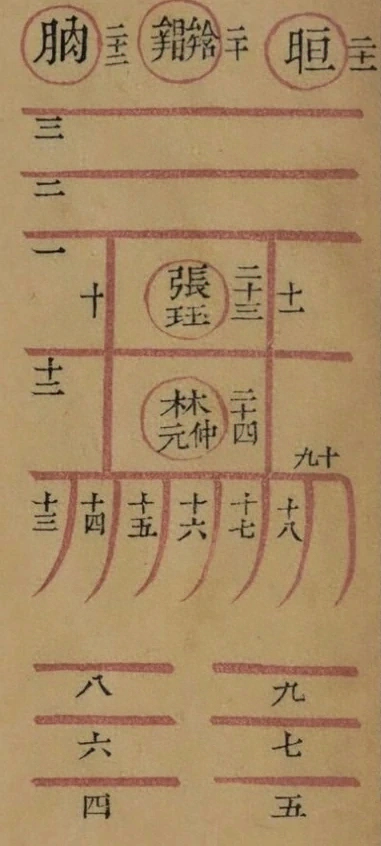 晅
二十一
二十
朒
二十二
三
二
一
十一
二十三
張珏
十
十二
二十四
林仲元
十九
十八
十七
十六
十五
十四
十三
九
八
七
六
五
四